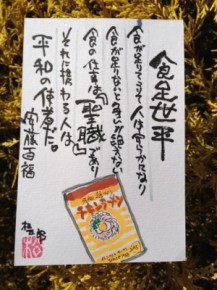 食足世平
食が足りてこそ人は安らかになり
食が足りないと争いが絶えない
食の仕事は『聖職』であり
それに携わる人は
平和の使者だ。
安藤百福
チキンラーメン